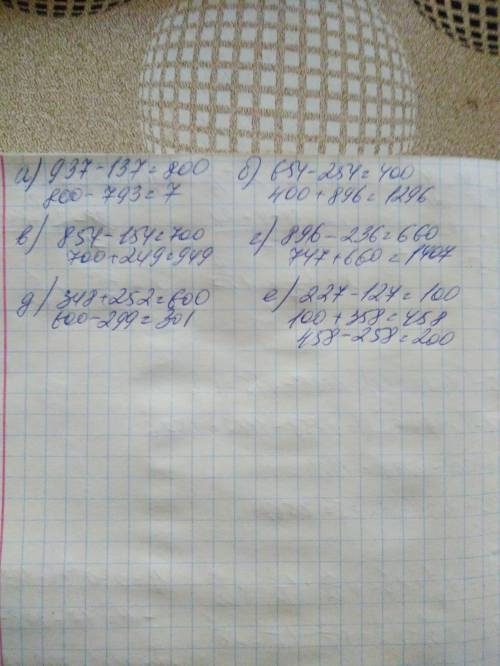 а) 937-137=800
800-793=7
б) 654-254=400
400+896=1296
в) 854-154=700
700+249=949
г) 896-236=660
747+660=1407
д) 348+252=600
600-299=301
е) 227-127=100
100+358=458
458-258=200